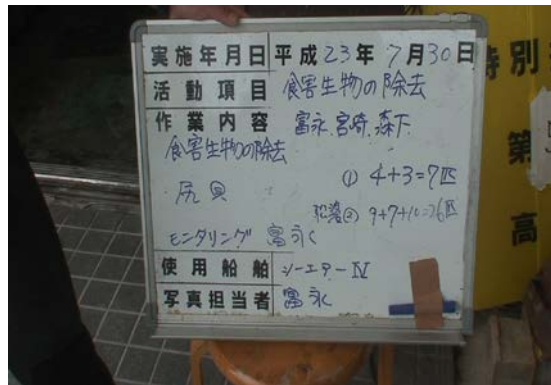 実施年月日 平成23年7月30日
活動項目 食害生物の除去
作業内容 富永、宮崎、森下
食害生物の除去
尻貝 ① 4+3=7匹
② 9+7+10=26匹
モニタリング 富永
使用船舶 シーエターⅣ
写真担当者 富永
特別
第
高